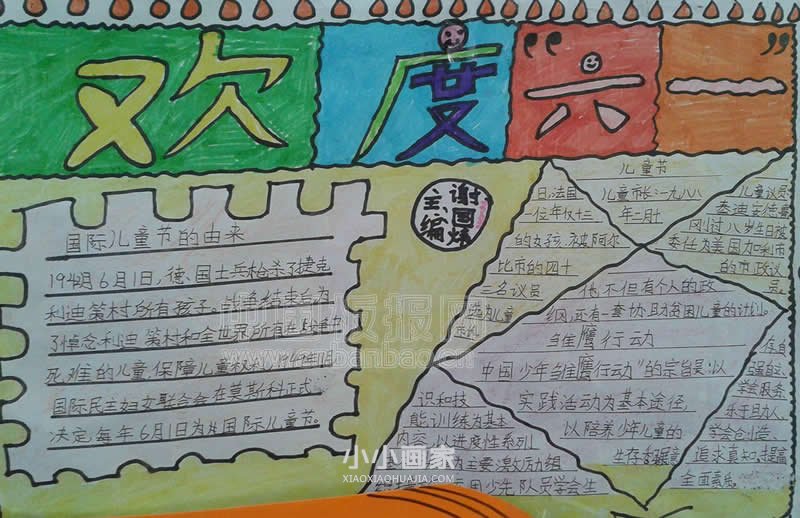 欢度“六一”
主编
谢国炳
国际儿童节的由来
1942年6月1日，德国士兵枪杀了捷克
利迪策村所有孩子。战争结束后为
了悼念利迪策村和全世界所有在战争中
死难的儿童保障儿童权利，1949年11月
国际民主妇女联合会在莫斯科正式
决定每年6月1日为国际儿童节。
儿童节
儿童市长：一九八八
年二月十
日，法国
一位年仅十三
的女孩被阿尔
比市的四十
三名议员
选为儿童
市长
儿童议员
刚过八岁生日被
委任为美国加利市
的市政议
员
他不但有个人的政
纲，还有一套协助贫困儿童的计划。
雏鹰行动
中国少年雏鹰行动”的宗旨是：以
实践活动为基本途径，
以培养少年儿童的
生存发展
识和技
能训练为基本
内容，以进度性系列
为主要激励组
少先队员学会生
学会服务
乐于助人
学会创造、
追求真知、提高
全面素
中国板报网
banbao.cn
小小画家
XIAOXIAOHUAJIA.COM